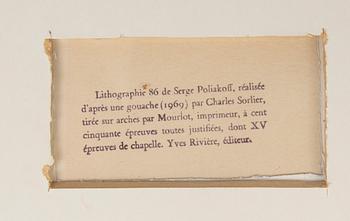 Lithographie 86 de Serge Poliakoff, réalisée
d'après une gouache (1969) par Charles Sorlier,
tirée sur arches par Mourlot, imprimeur, à cent
cinquante épreuves toutes justifiées, dont XV
épreuves de chapelle. Yves Rivière, éditeur.